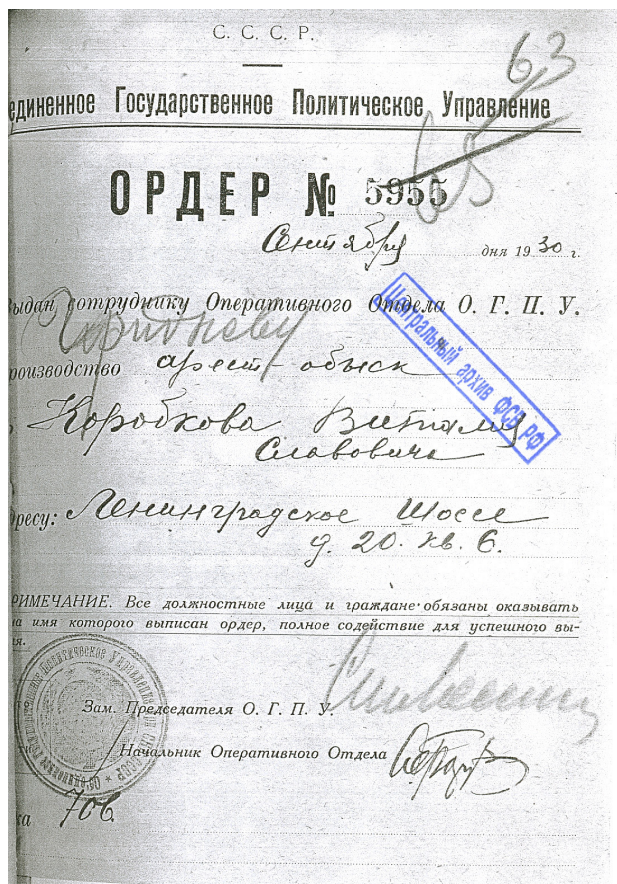 С. С. С. Р.
63
единенное Государственное Политическое Управление
65
ОРДЕР № 5955
Сентября дня 1930 г.
Выдан сотруднику Оперативного Отдела О. Г. П. У.
роизводство арест-обыск
Коробкова Виталия
Славовича
дресу: Ленинградское Шоссе
д. 20. кв. 6.
РИМЕЧАНИЕ. Все должностные лица и граждане обязаны оказывать
на имя которого выписан ордер, полное содействие для успешного вы-
я.
Зам. Председателя О. Г. П. У.
Начальник Оперативного Отдела
ка 706
Центральный архив ФСБ РФ